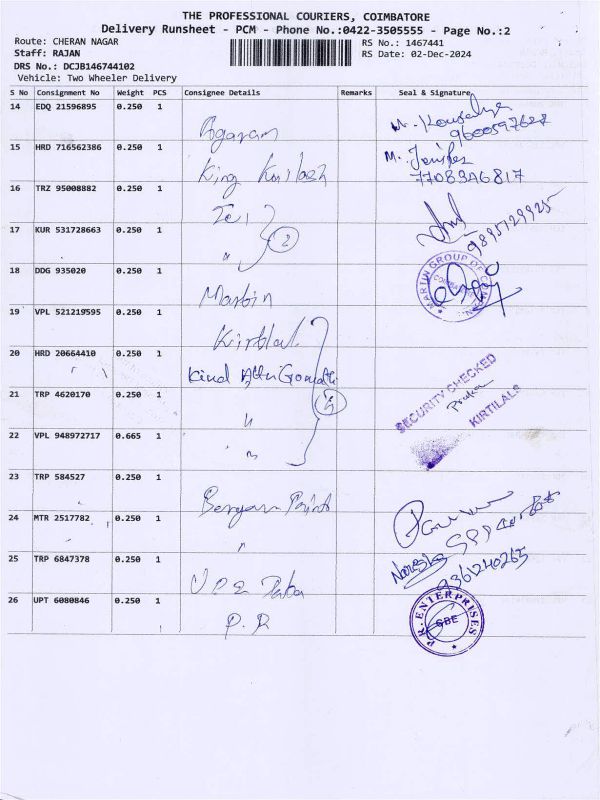 THE PROFESSIONAL COURIERS, COIMBATORE
Delivery Runsheet - PCM - Phone No.:0422-3505555 - Page No.:2
Route: CHERAN NAGAR RS No.: 1467441
Staff: RAJAN RS Date: 02-Dec-2024
DRS No.: DCJB146744102
Vehicle: Two Wheeler Delivery
S No Consignment No Weight PCS Consignee Details Remarks Seal & Signature
14 EDQ 21596895 0.250 1 Agaram
15 HRD 716562386 0.250 1 King
16 TRZ 95008882 0.250 1
17 KUR 531728663 0.250 1 " 2
18 DDG 935020 0.250 1 Martin MARTIN GROUP OF
19 VPL 521219595 0.250 1 Kirtilal
20 HRD 20664410 0.250 1 Kind Attn Gomathi
21 TRP 4620170 0.250 1 " SECURITY CHECKED KIRTILALS
22 VPL 948972717 0.665 1 "
23 TRP 584527 0.250 1 Paint
24 MTR 2517782 0.250 1 "
25 TRP 6847378 0.250 1 Naresh
26 UPT 6080846 0.250 1 P.R P.R.ENTERPRISES